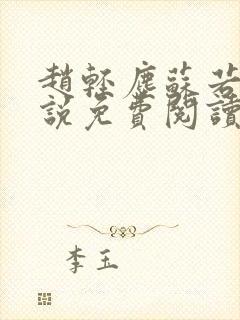 趙輕塵蘇若
說免費閱讀
李玉